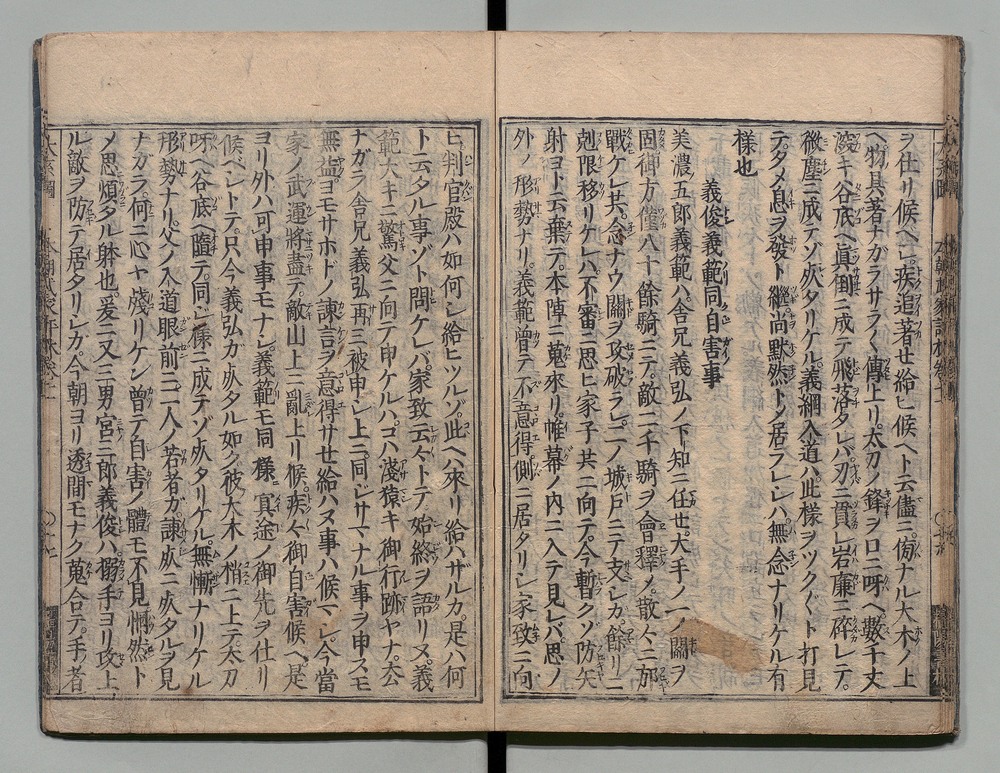 ヲ仕リ候ヘシ。疾追著セ給ヒ候ヘト云儘ニ。傍ナル大木ノ上
ヘ。物具著ナガラサラ〱ト傳上リ。太刀ノ鋒ヲ口ニ呀ヘ。數千丈
深キ谷底ヘ眞倒ニ成テ飛落タレバ。刃ニ貫レ岩廉ニ碎レテ。
微塵ニ成テゾ失タリケル。義綱入道ハ。此樣ヲツク〲ト打見
テ。タメ息ヲ發ト繼。尚默然トメ居ラレシハ。無念ナリケル有
樣也
義俊義範同ク自害事
美濃五郎義範ハ。舍兄義弘ノ下知ニ任セ。大手ノ一ノ關ヲ
固。御方僅八十餘騎ニテ。敵二千騎ヲ會釋メ。散々ニ防
戰ケレ共。念ナウ關ヲ攻破ラレ。二ノ城戸ニテ支シカ。餘リニ
剋限移リケレバ。不審ニ思ヒ。家子共ニ向テ。今暫クソ防矢
射ヨト云棄テ。本陣ニ蒐來リ。帷幕ノ内ニ入テ見レバ。思ノ
外ノ形勢ナリ。義範曾テ不意得。側ニ居タリシ家致ニ向
ヒ。判官殿ハ如何シ給ヒツルゾ。此ヘハ來リ給ハザルカ。是ハ何
ト云タル事ゾト問ケレバ。家致云々トテ。始終ヲ語リヌ。義
範大キニ驚。父ニ向テ申ケルハ。コハ淺猿キ御行跡ヤナ。太公
ナガラ舍兄義弘再三被申シ上ニ。同シサマナル事ヲ申スモ
無益ヨ。モサホドノ諫言ヲ意得サセ給ハヌ事ハ候マシ。今當
家ノ武運將盡テ。敵山上ニ亂上リ候。疾々御自害候ヘ。是
ヨリ外ハ可申事モナシ。義範モ同樣冥途ノ御先ヲ仕リ
候ベシトテ。只今義弘ガ失タル如ク。彼大木ノ梢ニ上テ。太刀
呀ヘ谷底ヘ墮テ。同シ樣ニ成テゾ失タリケル。無慚ナリケル
形勢ナリ。父ノ入道眼前ニ二人ノ若者ガ。諫失ニ失タルヲ見
ナガラ。何ニ心ヤ殘リケン。曾テ自害ノ體モ不見。惘然ト
メ思煩タル躰也。爰ニ又三男宮三郎義俊ハ。搦手ヨリ攻上
ル敵ヲ防テ居タリシカ。今朝ヨリ透間モナク蒐合テ。手ノ者